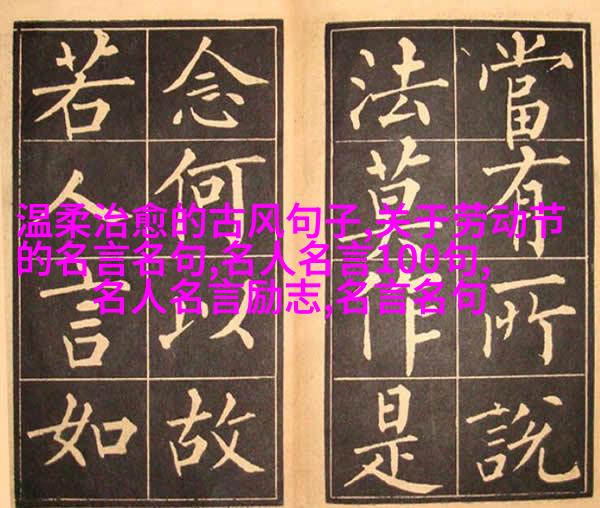 當有所說
法莫作是
念何以故
若人言如
温柔治愈的古风句子,关于劳动节
的名言名句,名人名言100句,
名人名言励志,名言名句